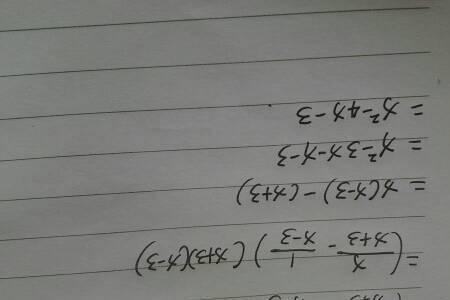 = (x/(x+3) - 1/(x-3)) (x+3)(x-3)
= x(x-3) - (x+3)
= x²-3x-x-3
= x²-4x-3